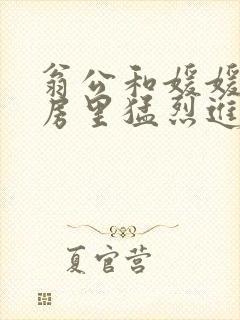 翁公和媛媛
房里猛烈进
夏官营